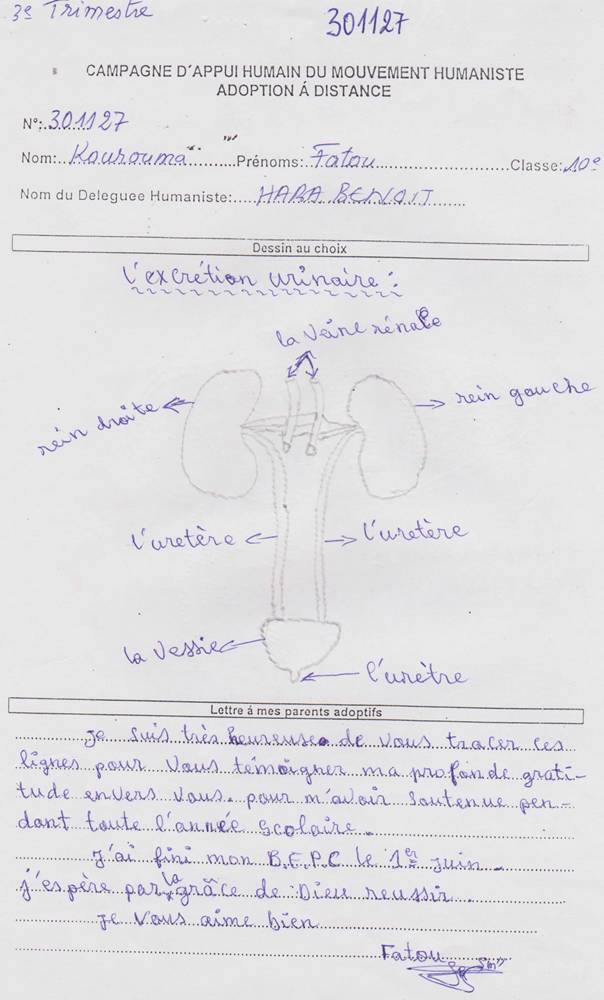 3e Trimestre
301127
CAMPAGNE D'APPUI HUMAIN DU MOUVEMENT HUMANISTE
ADOPTION Á DISTANCE
N°:..301127
Nom:..Kourouma.........Prénoms:..Fatou........................Classe:.10e
Nom du Deleguee Humaniste:....HABA BENOIT......
Dessin au choix
L'excrétion urinaire :
la Veine rénale
rein droite
rein gauche
l'uretère
l'uretère
la Vessie
l'urètre
Lettre á mes parents adoptifs
Je suis très heureuse de vous tracer ces
lignes pour vous témoigner ma profonde grati-
tude envers vous. pour m'avoir soutenue pen-
dant toute l'année scolaire.
J'ai fini mon B.E.P.C le 1er juin.
j'espère par la grâce de Dieu reussir.
Je vous aime bien
Fatou